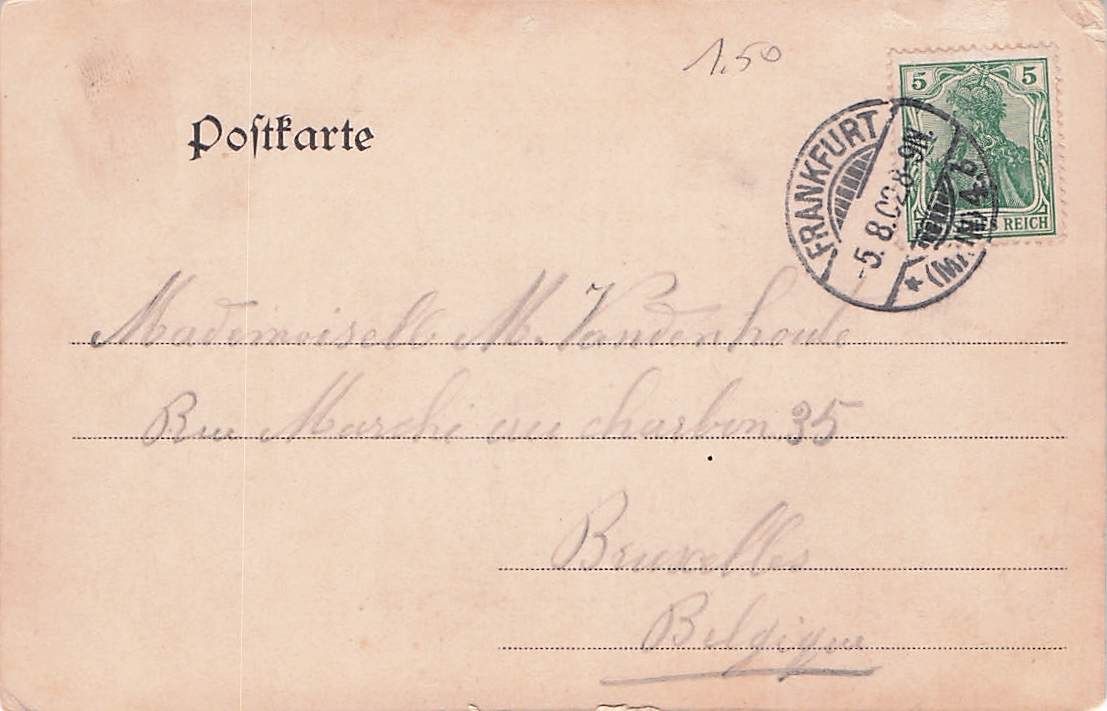 1.50
5 5
REICH
FRANKFURT
-5.8.02.8-9N.
* (MAIN)
Postkarte
Mademoiselle M. Vandenhoute
Rue Marché au charbon 35
Bruxelles
Belgique